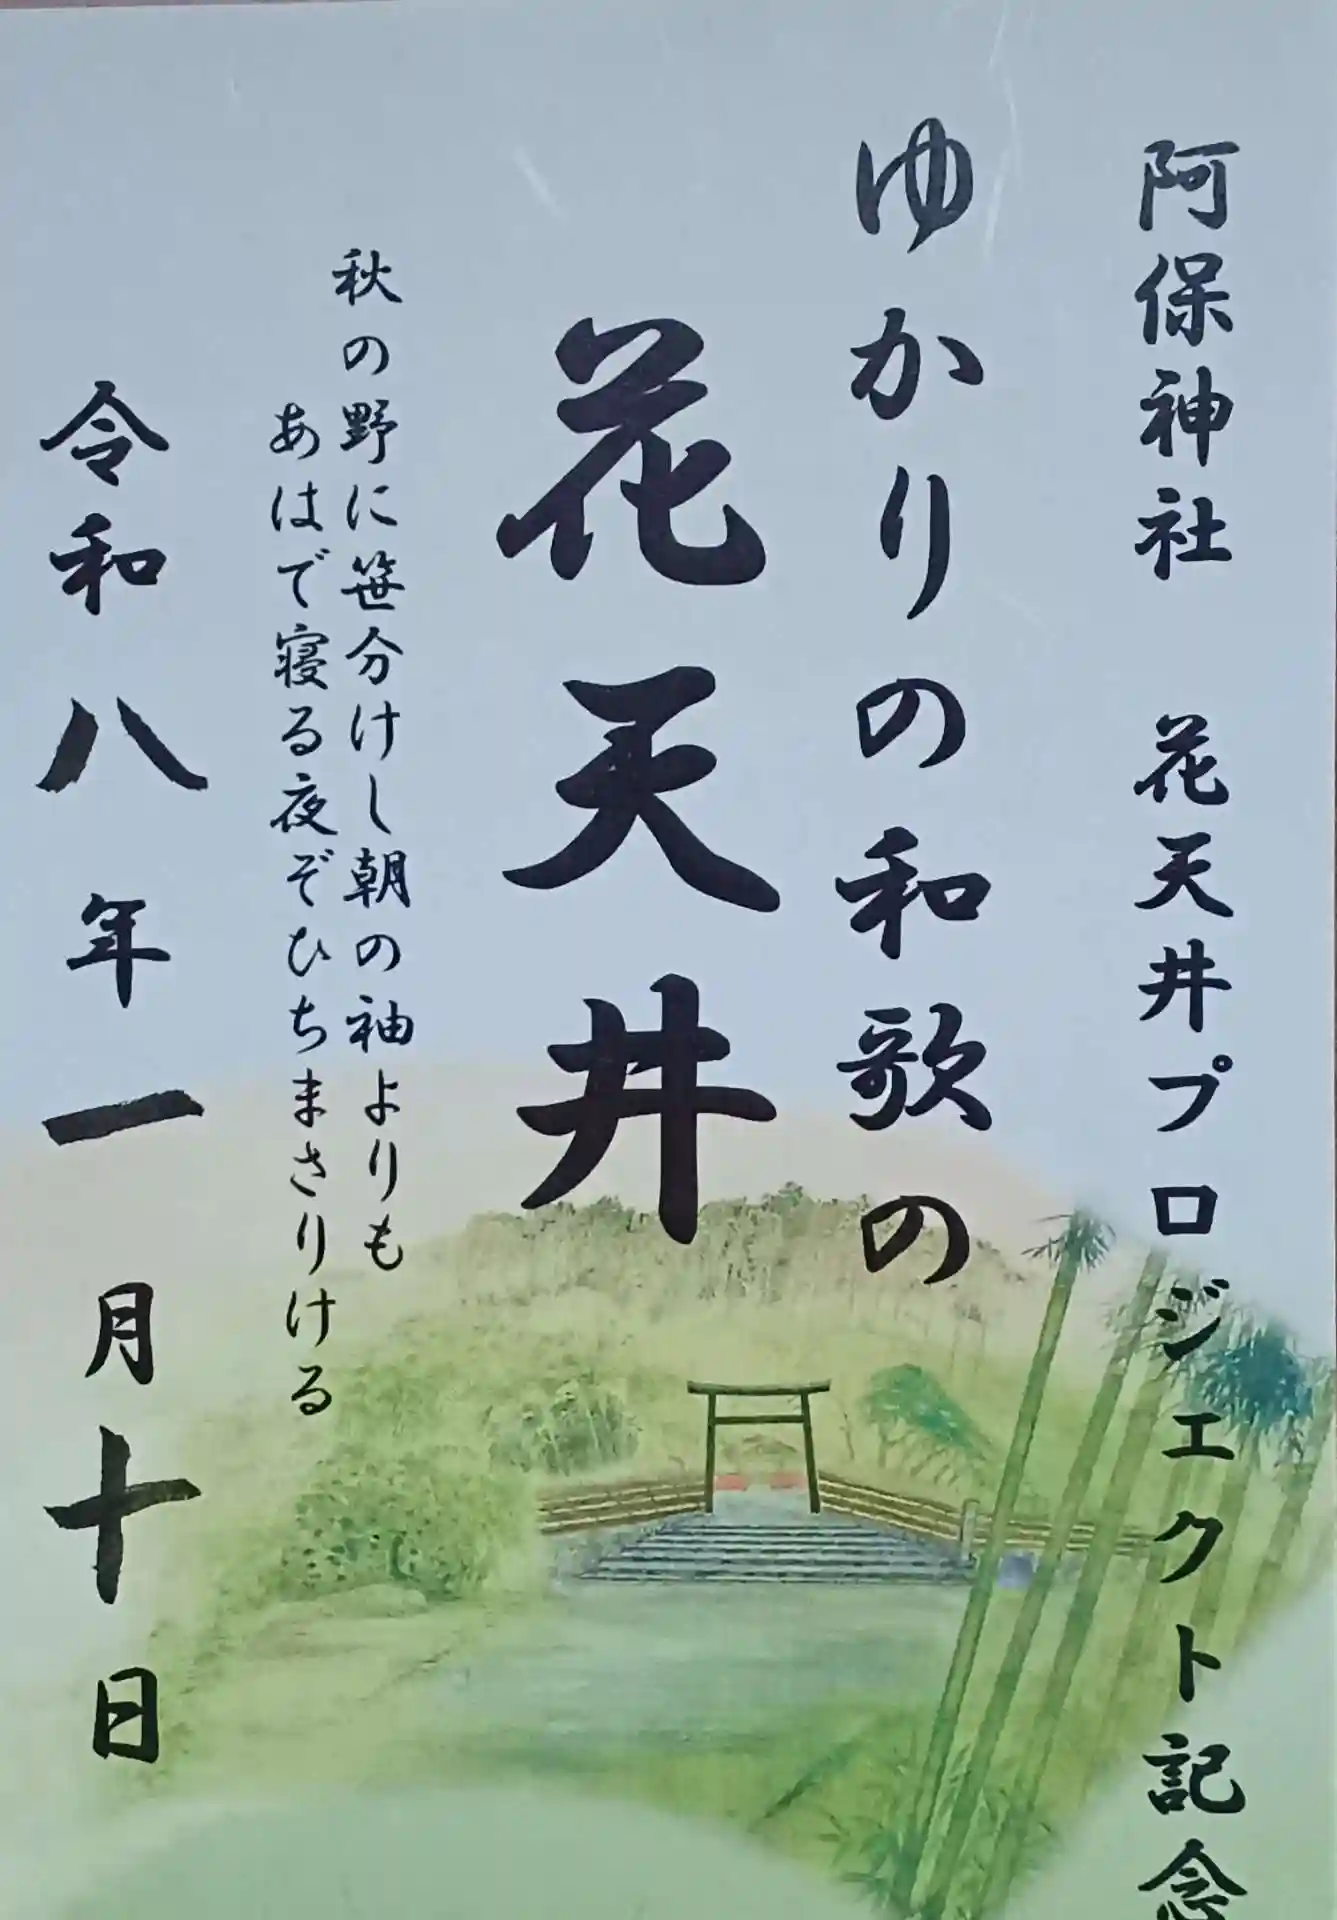 阿保神社　花天井プロジェクト記念
ゆかりの和歌の
花天井
秋の野に笹分けし朝の袖よりも
あはで寝る夜ぞひちまさりける
令和八年一月十日